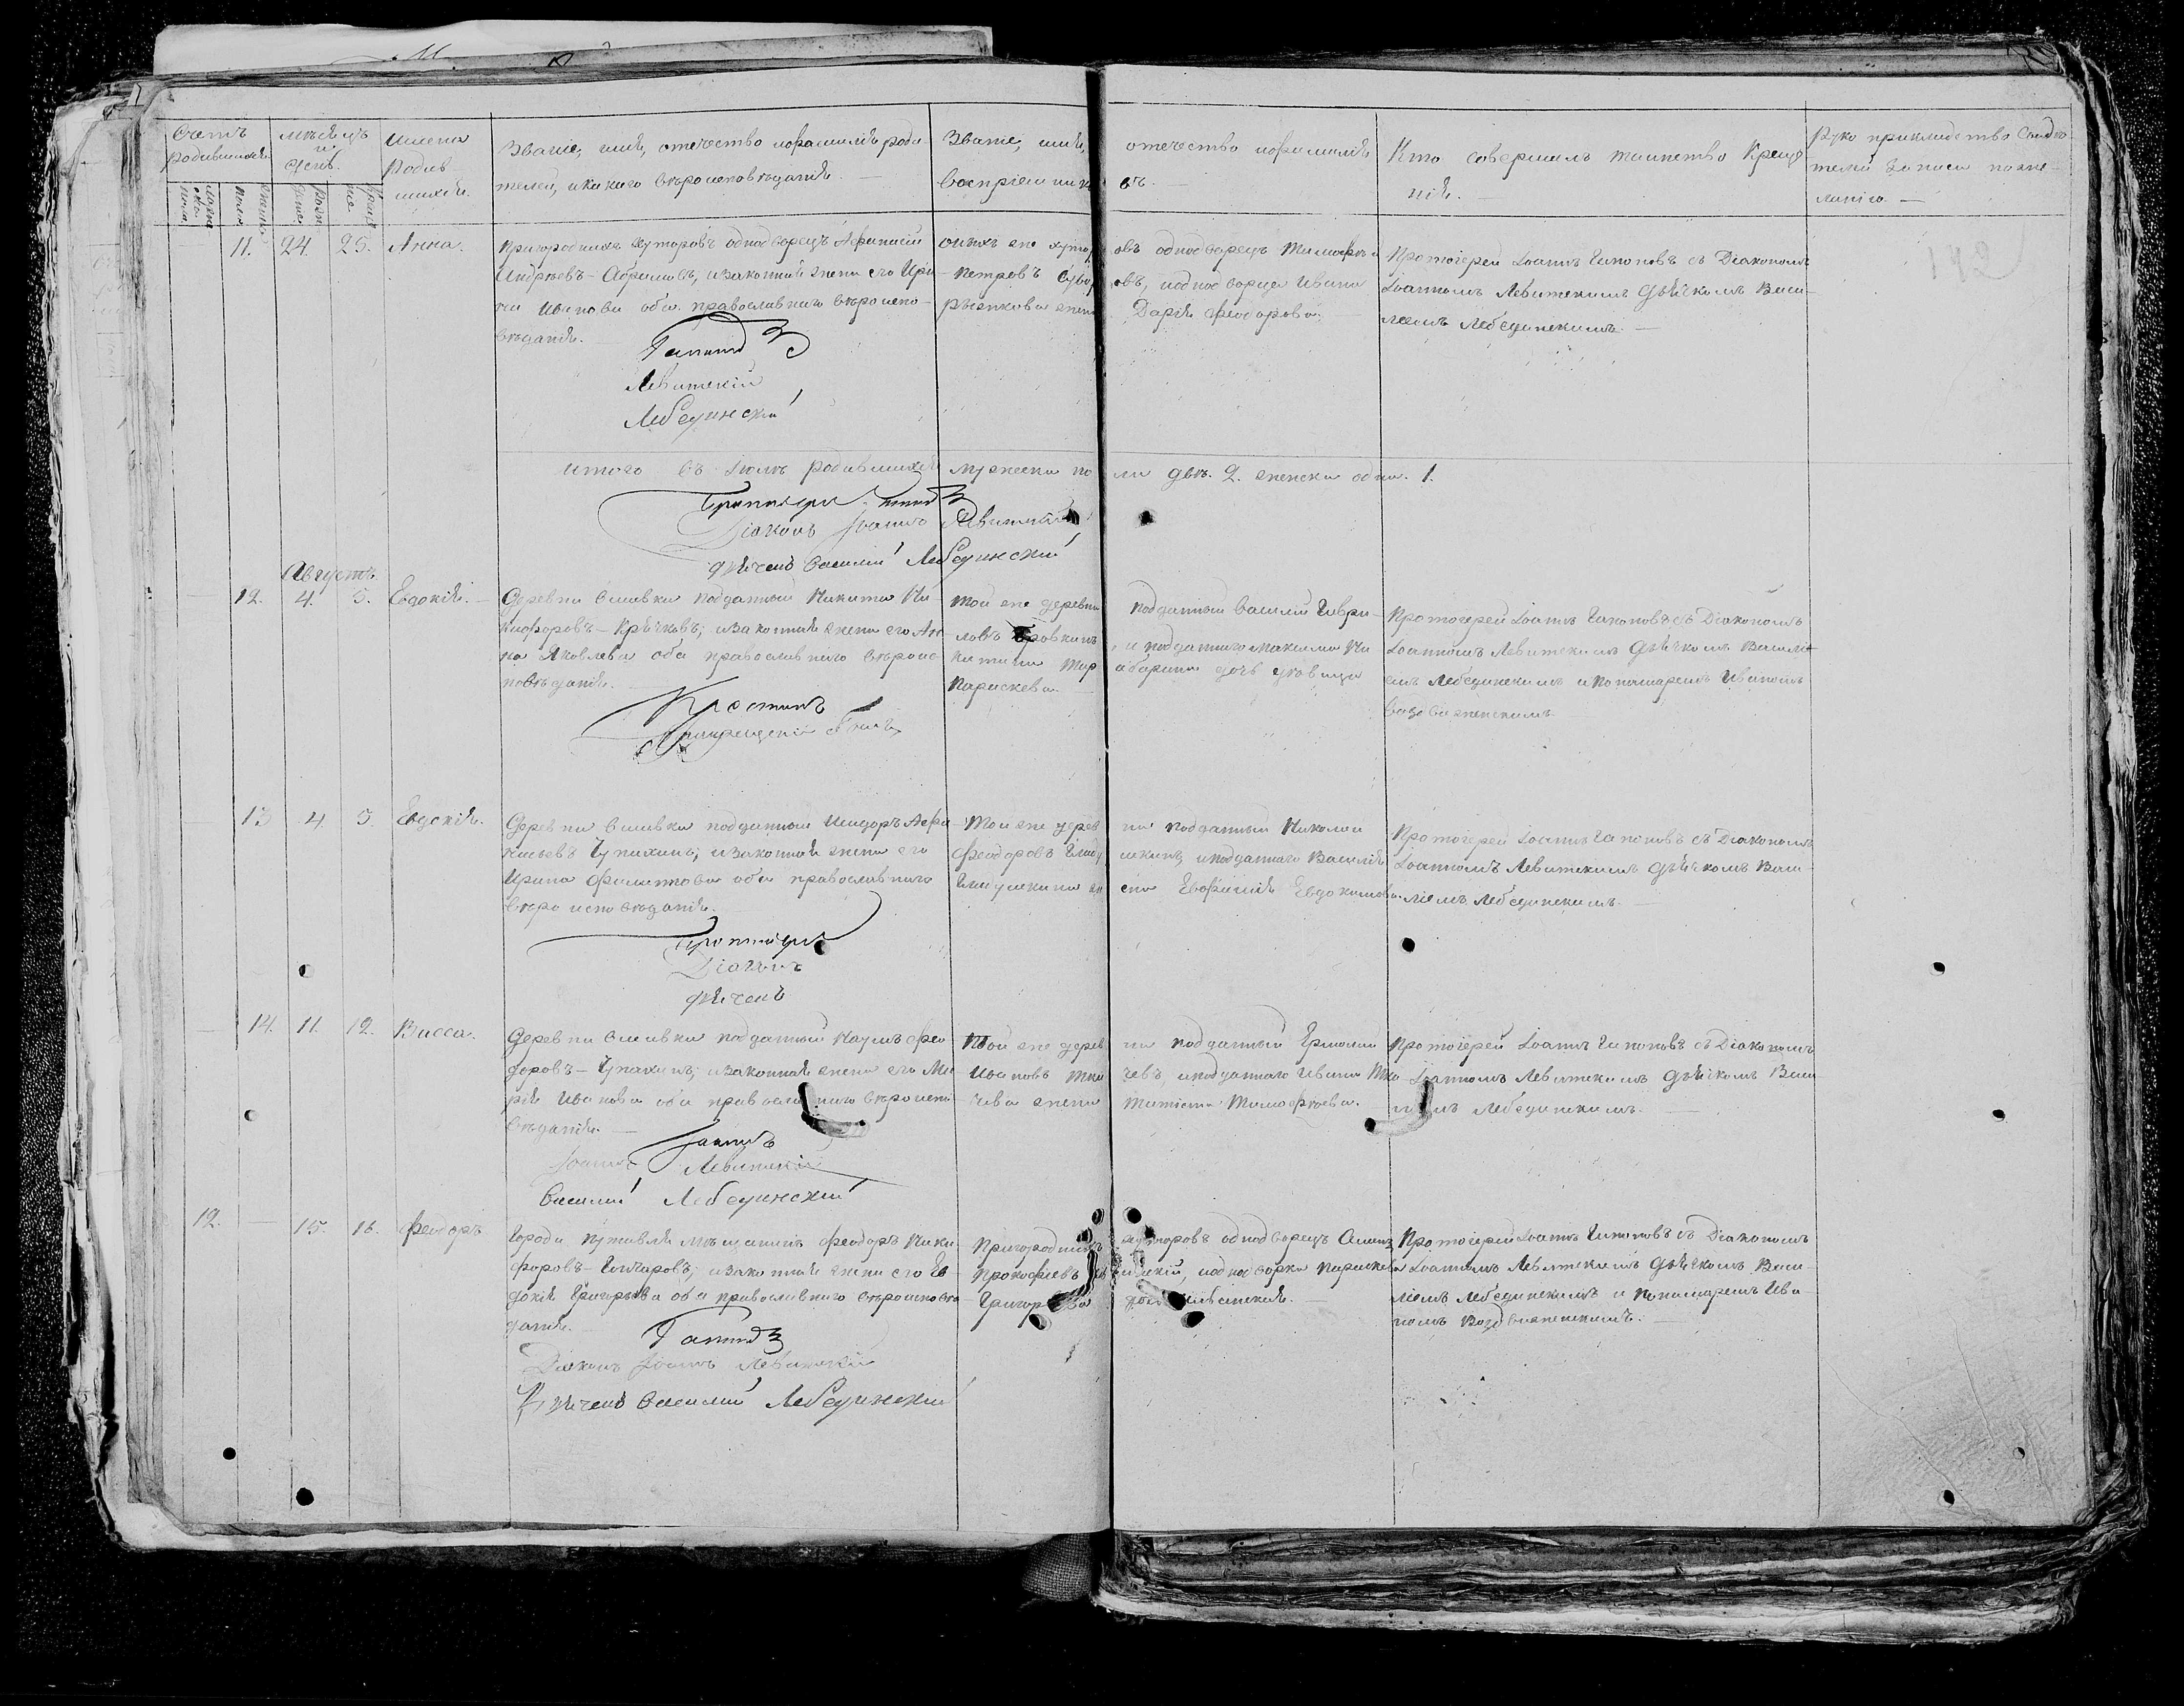 Счетъ родившихся.
мѣсяцъ и день.
Имена родившихся.
Званіе, имя, отечество и фамилія роди-
телей, и какого вѣроисповѣданія.
Званіе, имя, отечество и фамилія
воспріемниковъ.
Кто совершалъ таинство Креще-
нія.
Руко прикладство свидѣ-
телей записи по же-
ланію.
11. 24. 25. Анна.
Пригородныхъ хуторовъ однодворецъ Афанасій
Андреевъ - Абрамовъ, и законная жена его Ири-
на Иванова оба православнаго вѣроиспо-
вѣданія.
оныхъ же хуторовъ однодворецъ Тимофей
Петровъ
овъ, и однодворца Ивана
жена Дарія Феодорова.
Протоіерей Іоаннъ Гапоновъ съ Діакономъ
Іоанномъ Левитскимъ Дьячкомъ Васи-
ліемъ Лебединскимъ.
Левитскій
Лебединскій
Итого въ Іюлѣ родившихся мужеска пола двѣ. 2. женска одна. 1.
Діаконъ Іоаннъ Левитскій
Дьячекъ Василій Лебединскій
Августъ.
12. 4. 5. Евдокія.
Деревни подданный Никита Ни-
кифоровъ - Крѣчковъ, и законная жена его Ан-
на Яковлева оба православнаго вѣроис-
повѣданія.
Той же деревни подданный Василій Гаври-
ловъ и подданнаго Максима Ни-
китина дочь дѣвица
Параскева.
Протоіерей Іоаннъ Гапоновъ съ Діакономъ
Іоанномъ Левитскимъ Дьячкомъ Василі-
емъ Лебединскимъ и Пономаремъ Иваномъ
13 4. 5. Евдокія.
Деревни подданный Исидоръ Афа-
насьевъ и законная жена его
Ирина Филиппова оба православнаго
вѣроисповѣданія.
Той же деревни подданный Николай
Феодоровъ и подданнаго Василія
жена Евфимія Евдокимова.
Протоіерей Іоаннъ Гапоновъ съ Діакономъ
Іоанномъ Левитскимъ Дьячкомъ Васи-
ліемъ Лебединскимъ.
Діаконъ
Дьячекъ
14. 11. 12. Васса.
Деревни подданный Наумъ Фео-
доровъ - и законная жена его Ма-
рія Иванова оба православнаго вѣроиспо-
вѣданія.
Той же деревни подданный Ермолай
Ивановъ Ткачевъ, и подданнаго Ивана Тка-
чева жена Татіана Тимофеева.
Протоіерей Іоаннъ Гапоновъ съ Діакономъ
Іоанномъ Левитскимъ Дьячкомъ Васи-
ліемъ Лебединскимъ.
Іоаннъ Левитскій
Василій Лебединскій
12. 15. 16. Феодоръ
Города Путивля мѣщанинъ Феодоръ Ники-
форовъ - Гончаровъ, и законная жена его Ев-
докія Григорьева оба православнаго вѣроисповѣ-
данія.
Пригородныхъ хуторовъ однодворецъ
Прокофіевъ и однодворка Параскева
Григорьева
Протоіерей Іоаннъ Гапоновъ съ Діакономъ
Іоанномъ Левитскимъ Дьячкомъ Васи-
ліемъ Лебединскимъ и Пономаремъ Ива-
номъ Воздвиженскимъ.
Діаконъ Іоаннъ Левитскій
Дьячекъ Василій Лебединскій